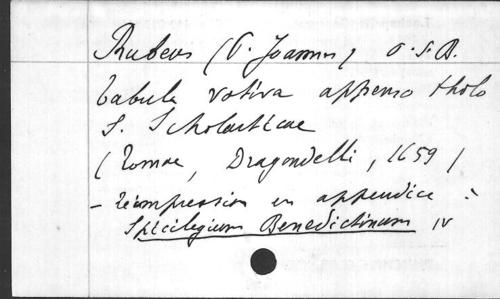 Rubeus (P. Joannes) O.S.B.
Tabula votiva appensa tholo
S. Scholasticae
(Romae, Dragondelli, 1659)
- réimpression en appendice :
Spicilegium Benedictinum IV